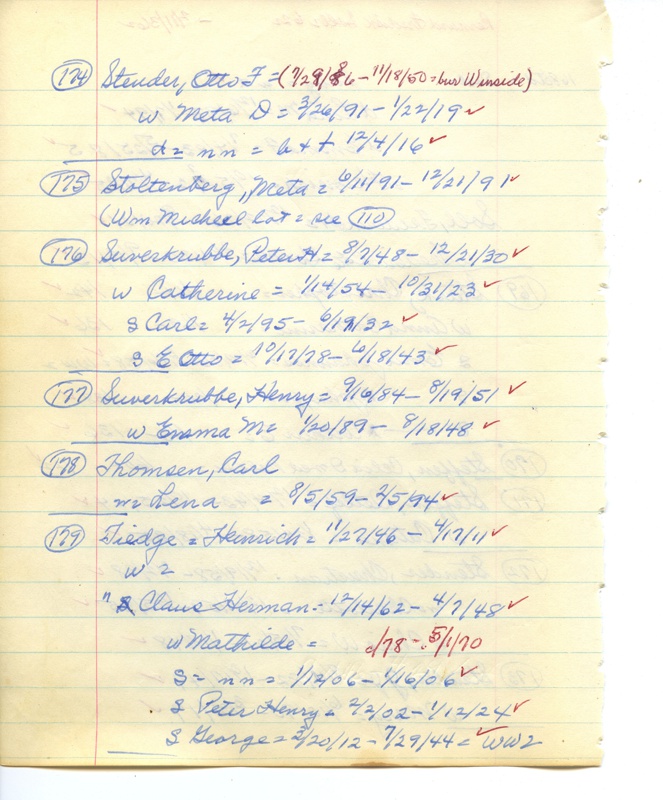 (174) Steuder, Otto F = (7/29/86 - 11/18/50 = bur Winside)
w Meta D = 3/26/91 - 1/22/19 ✓
d = nn = b + d 12/4/16 ✓
(175) Stoltenberg, Meta = 6/11/91 - 12/21/91 ✓
(Wm Micheel lot = see (110)
(176) Suverkrubbe, Peter H = 8/7/48 - 12/21/30 ✓
w Catherine = 1/14/54 - 10/31/23 ✓
S Carl = 4/2/95 - 6/19/32 ✓
S E Otto = 10/17/78 - 6/18/43 ✓
(177) Suverkrubbe, Henry = 9/16/84 - 8/19/51 ✓
w Emma M = 1/20/89 - 8/18/48 ✓
(178) Thomsen, Carl
m = Lena = 8/5/59 - 2/5/94 ✓
(179) Tiedge = Heinrich = 11/27/46 - 4/17/11 ✓
w =
" Claus Herman = 12/14/62 - 4/7/48 ✓
w Mathilde = /78 - 5/1/70
S = nn = 1/12/06 - 1/16/06 ✓
S Peter Henry = 2/2/02 - 1/12/24 ✓
S George = 3/20/12 - 7/29/44 = ✓ WW2